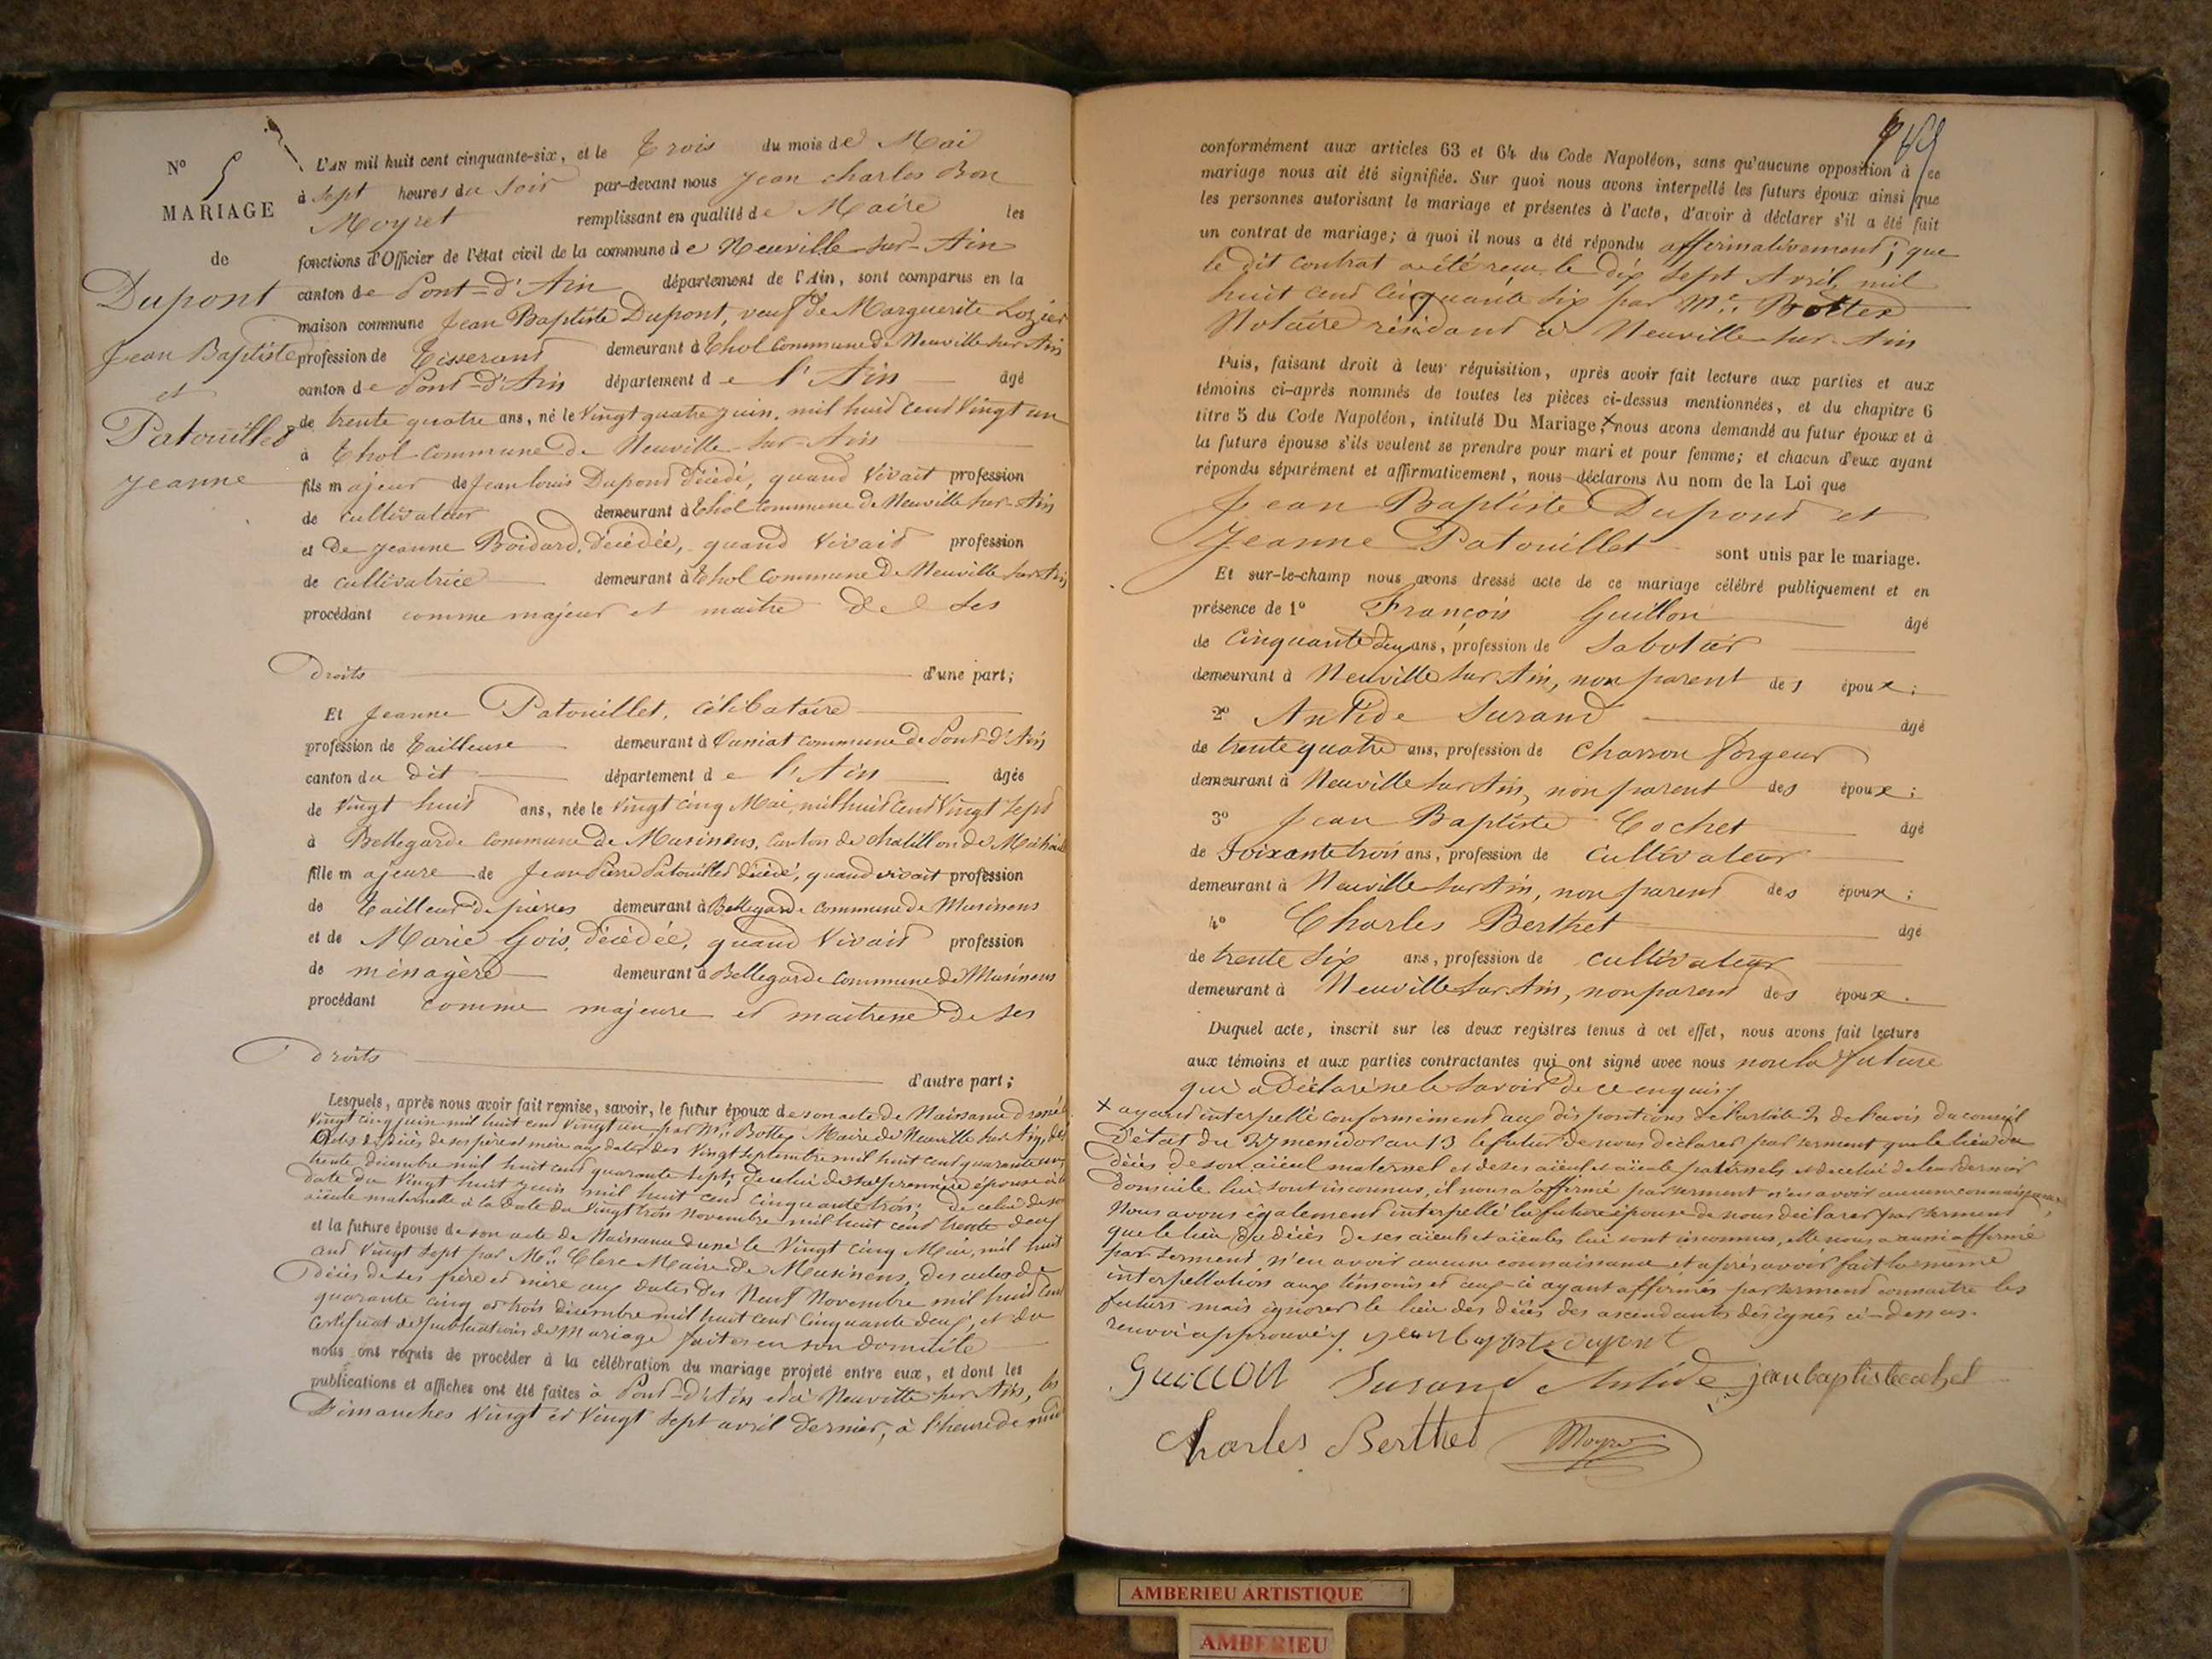 N° 5
MARIAGE
de
Dupont
Jean Baptiste
et
Patouillet
Jeanne
L'AN mil huit cent cinquante-six, et le Trois du mois de Mai
à sept heures du Soir par-devant nous Jean Charles Bon
Moyret remplissant en qualité de Maire les
fonctions d'Officier de l'état civil de la commune de Neuville-sur-Ain
canton de Pont-d'Ain département de l'Ain, sont comparus en la
maison commune Jean Baptiste Dupont, veuf de Marguerite Lozier
profession de Tisserand demeurant à Thol commune de Neuville sur Ain
canton de Pont-d'Ain département de l'Ain âgé
de trente quatre ans, né le Vingt quatre juin, mil huit cent Vingt un
à Thol commune de Neuville-sur-Ain
fils majeur de Jean Louis Dupond décédé, quand Vivait profession
de cultivateur demeurant à Thol commune de Neuville sur-Ain
et De Jeanne Boidard, décédée, quand Vivait profession
de cultivatrice demeurant à Thol commune de Neuville sur Ain
procédant comme majeur et maître de ses
Droits d'une part;
Et Jeanne Patouillet, célibataire
profession de Tailleuse demeurant à commune de Pont-d'Ain
canton du dit département de l'Ain âgée
de Vingt huit ans, née le Vingt cinq Mai, mil huit cent Vingt sept
à Bellegarde commune de Musinens, canton de Chatillon de Michaille
fille majeure de Jean Pierre Patouillet décédé, quand vivait profession
de Tailleur de pierres demeurant à Bellegarde commune de Musinens
et de Marie Gois, décédée, quand Vivait profession
de ménagère demeurant à Bellegarde commune de Musinens
procédant comme majeure et maitresse de ses
droits d'autre part;
Lesquels, après nous avoir fait remise, savoir, le futur époux de son acte de Naissance dressé le
Vingt cinq juin mil huit cent Vingt un par Mr. Bottex Maire de Neuville sur Ain, des
actes de décès de ses père et mère aux dates des Vingt septembre mil huit cent quarante un,
trente décembre mil huit cent quarante sept; de celui de sa première épouse à la
date du Vingt huit juin mil huit cent cinquante trois; de celui de son
aïeule maternelle à la date du Vingt trois Novembre mil huit cent trente deux
et la future épouse de son acte de Naissance dressé le Vingt cinq Mai, mil huit
cent Vingt sept par Mr. Clerc Maire de Musinens, des actes de
décès de ses père et mère aux dates des Neuf Novembre mil huit cent
quarante cinq et trois Décembre mil huit cent cinquante deux, et du
certificat de publications de Mariage faites en son domicile
nous ont requis de procéder à la célébration du mariage projeté entre eux, et dont les
publications et affiches ont été faites à Pont-d'Ain et à Neuville sur Ain, les
Dimanches Vingt et Vingt sept avril dernier, à l'heure de midi
conformément aux articles 63 et 64 du Code Napoléon, sans qu'aucune opposition à ce
mariage nous ait été signifiée. Sur quoi nous avons interpellé les futurs époux ainsi que
les personnes autorisant le mariage et présentes à l'acte, d'avoir à déclarer s'il a été fait
un contrat de mariage; à quoi il nous a été répondu affirmativement; que
le dit contrat a été reçu le dix sept Avril mil
huit cent cinquante six par Me. Bottex
Notaire résidant à Neuville sur-Ain
Puis, faisant droit à leur réquisition, après avoir fait lecture aux parties et aux
témoins ci-après nommés de toutes les pièces ci-dessus mentionnées, et du chapitre 6
titre 5 du Code Napoléon, intitulé Du Mariage, x nous avons demandé au futur époux et à
la future épouse s'ils veulent se prendre pour mari et pour femme; et chacun d'eux ayant
répondu séparément et affirmativement, nous déclarons Au nom de la Loi que
Jean Baptiste Dupond et
Jeanne Patouillet sont unis par le mariage.
Et sur-le-champ nous avons dressé acte de ce mariage célébré publiquement et en
présence de 1° François Guillon âgé
de Cinquante deux ans, profession de Sabotier
demeurant à Neuville sur Ain, non parent des époux;
2° Antide Surand âgé
de trente quatre ans, profession de Charron forgeur
demeurant à Neuville sur Ain, non parent des époux;
3° Jean Baptiste Cochet âgé
de Soixante trois ans, profession de Cultivateur
demeurant à Neuville sur Ain, non parent des époux;
4° Charles Berthet âgé
de trente six ans, profession de cultivateur
demeurant à Neuville sur Ain, non parent des époux.
Duquel acte, inscrit sur les deux registres tenus à cet effet, nous avons fait lecture
aux témoins et aux parties contractantes qui ont signé avec nous non la future
qui a Déclaré ne le savoir de ce enquis
x ayant interpellé conformément aux dispositions de l'article 2 de l'avis du conseil
d'état du 27 messidor an 13 le futur de nous déclarer par serment que le lieu du
décès de son aïeul maternel et de ses aïeul et aïeule paternels et de celui de leur dernier
Domicile lui sont inconnus, il nous a affirmé par serment n'en avoir aucune connaissance,
Nous avons également interpellé la future épouse de nous déclarer par serment
que le lieu du décès de ses aïeuls et aïeules lui sont inconnus, elle nous a aussi affirmé
par serment n'en avoir aucune connaissance et après avoir fait la même
interpellation aux témoins et ceux-ci ayant affirmés par serment connaître les
futurs mais ignorer le lieu des décès des ascendants désignés ci-dessus.
renvoi approuvé. jean bapte dupont
Guillon Surand Antide jean baptiste cochet
Charles Berthet Moyret
AMBERIEU ARTISTIQUE
AMBERIEU